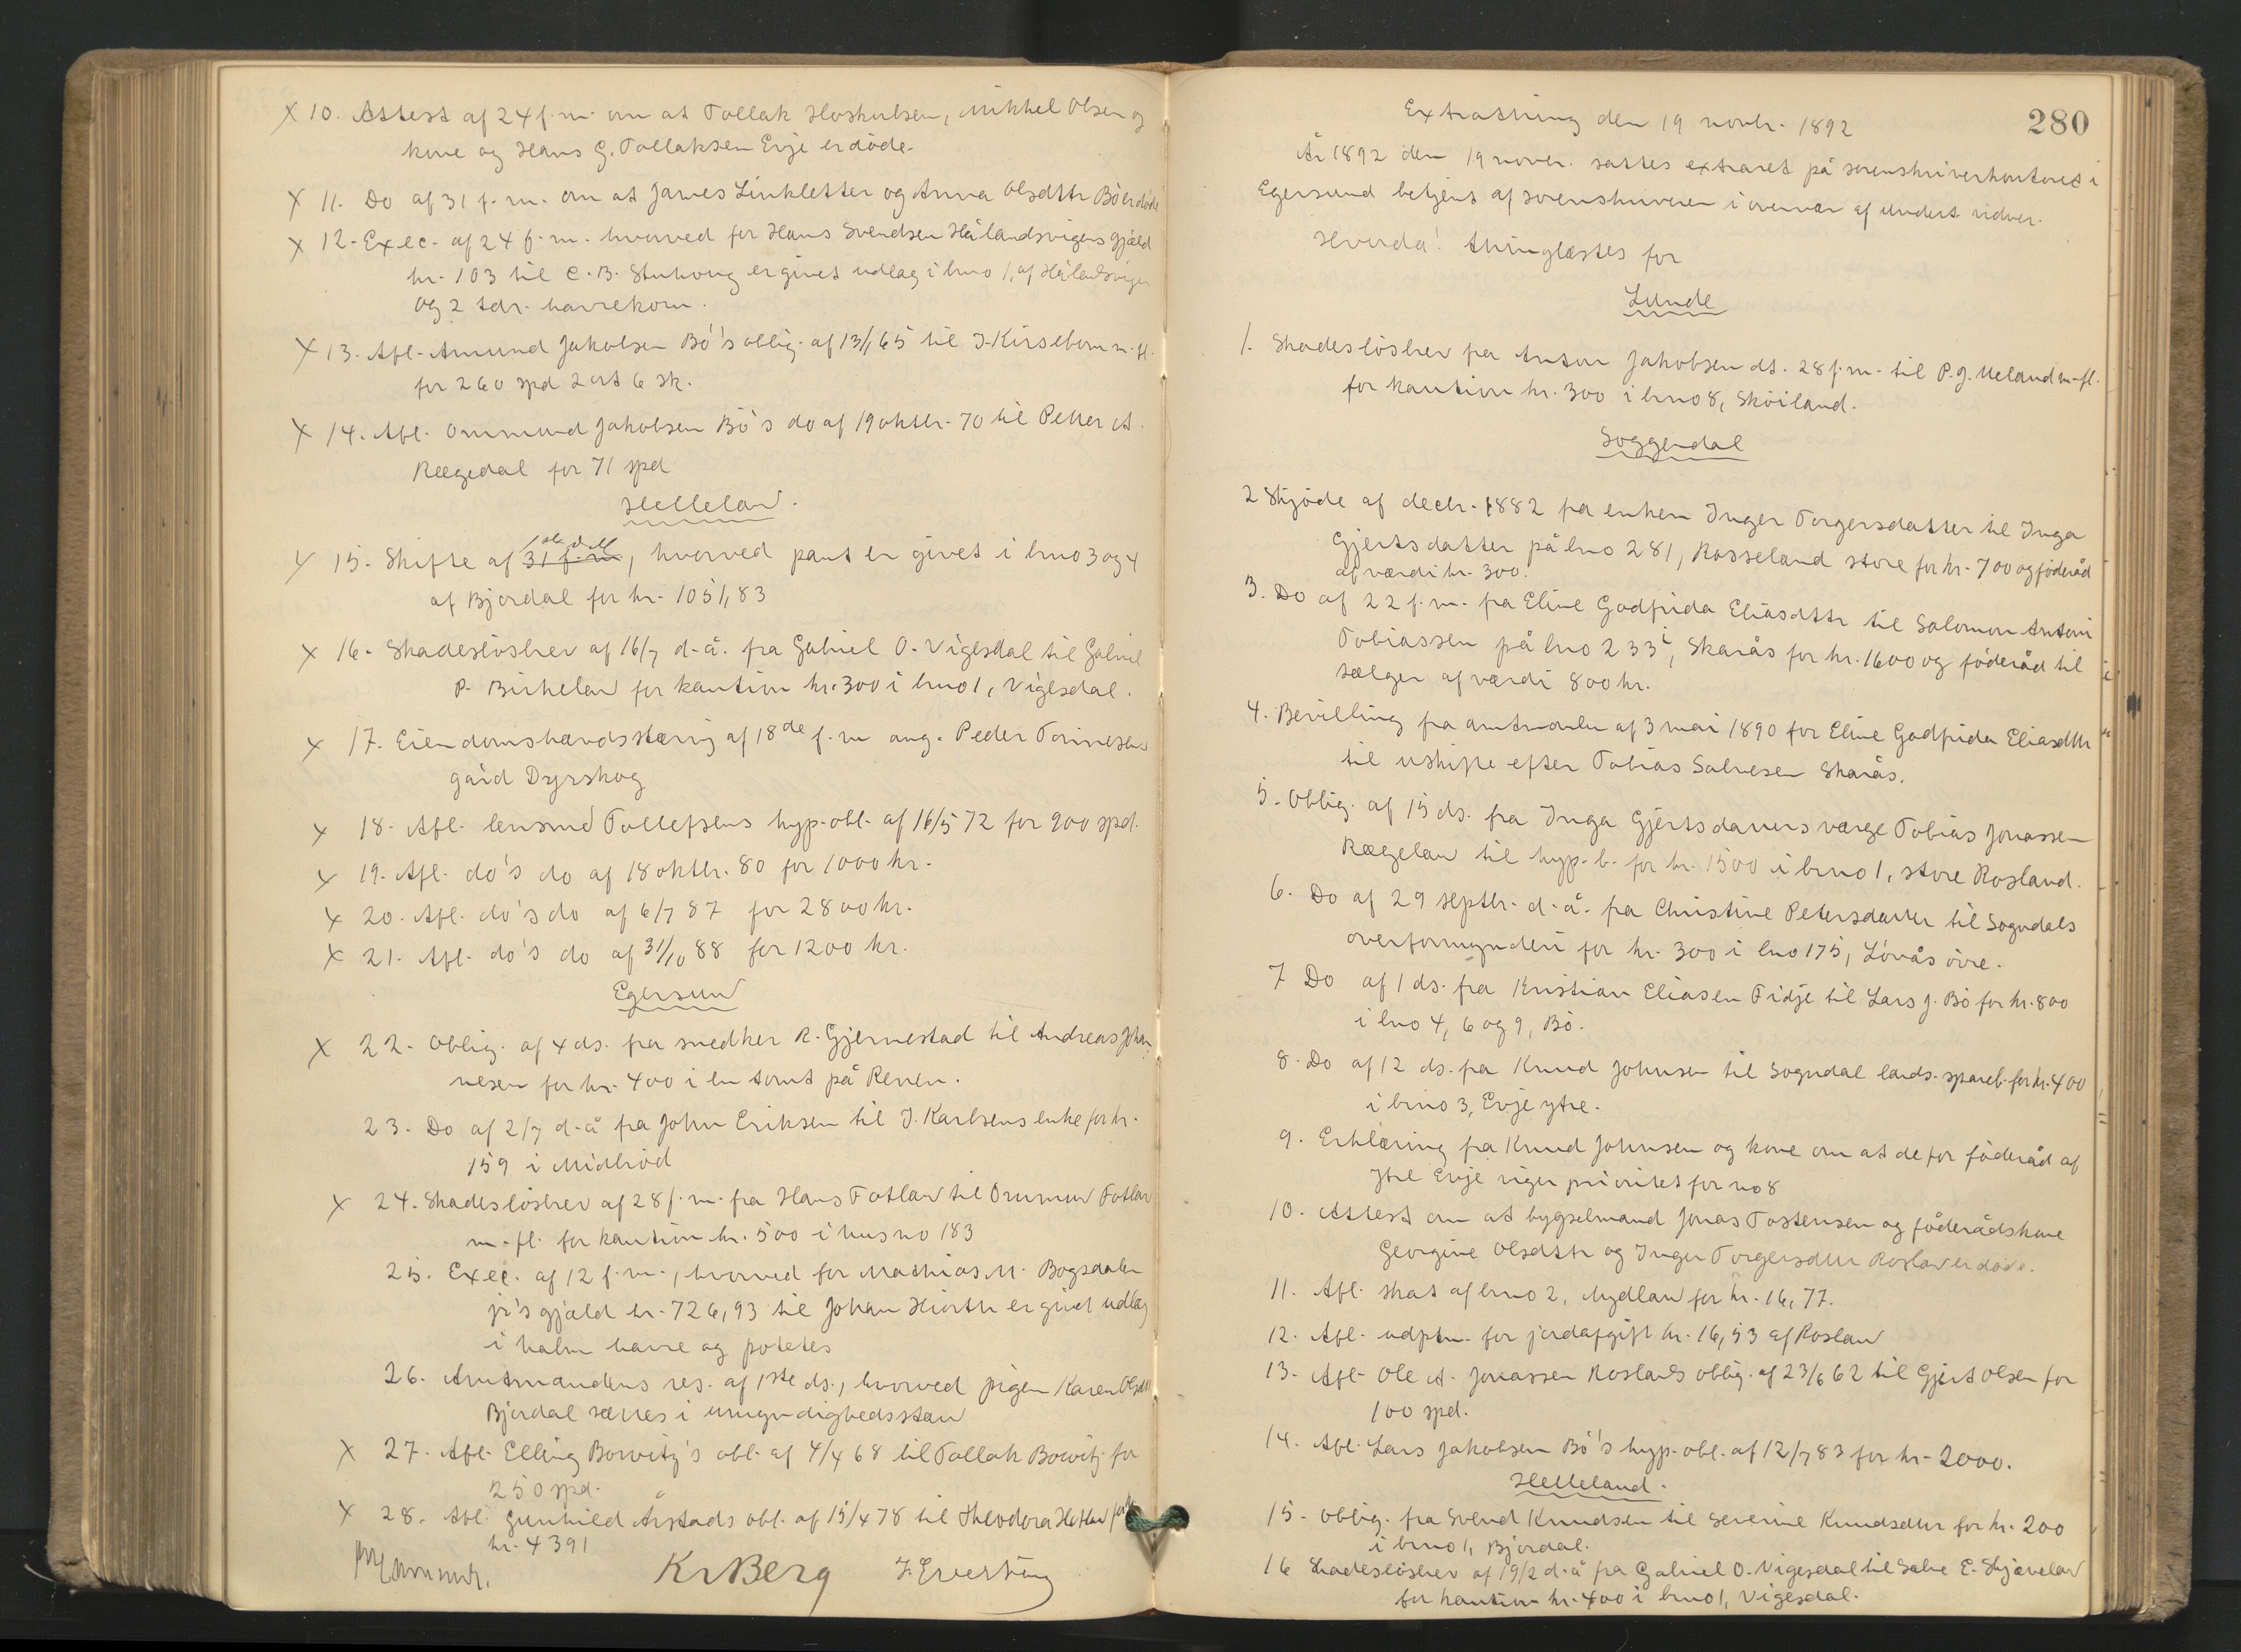 X 10. Attest af 24 f. m. om at Tollak Hoskulsen, Mikkel Olsen og
kone og Hans G. Tollaksen Evje er døde.
X 11. Do af 31 f. m. om at James Linkletter og Anna Olsdttr Bö er döde
X 12. Exec. af 24 f. m. hvorved for Hans Svendsen Hålandsvigens gjæld
kr. 103 til C. B. er givet udlag i brno 1, af Hålandsvigen
og 2 tdr. havrekorn.
X 13. Afl. Amund Jakobsen Bö's oblig. af 13/1 65 til J. Kirsebom m. fl.
for 260 spd 2 ort 6 sk.
X 14. Afl. Ommund Jakobsen Bö's do af 19 oktbr. 70 til Petter A.
Rægedal for 71 spd
Helleland.
X 15. Skifte af 31 f. m, hvorved pant er givet i brno 3 og 4
af Bjordal for kr. 1051,83
X 16. Skadeslösbrev af 16/7 d. å. fra Gabriel O. Vigesdal til Gabriel
P. Birkeland for kaution kr. 300 i brno 1, Vigesdal.
X 17. Eiendomshævdsskæring af 18de f. m ang. Peder
gård Dyrskog
X 18. Afl. lensmd Tollefsens hyp. obl. af 16/5 72 for 900 spd.
X 19. Afl. do's do af 18 oktbr. 80 for 1000 kr.
X 20. Afl. do's do af 6/7 87 for 2800 kr.
X 21. Afl. do's do af 31/10 88 for 1200 kr.
Egersund
X 22. Oblig. af 4 ds. fra snedker R. Gjermestad til Andreas Johan
nesen for kr. 400 i en tomt på Renen.
23. Do af 2/7 d. å fra John Eriksen til J. Karlsens enke for kr.
159 i Midbröd
X 24. Skadeslösbrev af 28 f. m. fra Hans Fotland til Ommund Fotland
m. fl. for kaution kr. 500 i hus no 183
25. Exec. af 12 f. m., hvorved for Mathias M. Bogsdalen
jr's gjæld kr. 726,93 til Johan Hiorth er givet udlæg
i halm havre og potetes
26. Amtmandens res. af 1ste ds., hvorved pigen Karen Olsdttr
Bjordal sættes i umyndighedsstand
X 27. Afl. Elling Bowitz's obl. af 4/4 68 til Tollak Bowitz for
250 spd.
X 28. Afl. Gunhild Årstads obl. af 15/4 78 til Theodora Hetland for
kr. 4391
Kr Berg
280
Extrathing den 19 novbr. 1892
År 1892 den 19 novbr. sattes extraret på sorenskriverkontoret i
Egersund betjent af sorenskriveren i overvær af undert. vidner.
Hvorda! thinglæstes for
Lunde
1. Skadeslösbrev fra Anton Jakobsen dt. 28 f. m. til P. J. Ueland m. fl.
for kaution kr. 300 i brno 8, Sköiland.
Soggendal
2 Skjöde af decbr. 1882 fra enken Inger Torgersdatter til Inga
Gjertsdatter på lno 281, Rosseland store for kr. 700 og föderåd
af værdi kr. 300.
3. Do af 22 f. m. fra Eline Godfrida Eliasdttr til Salomon Antoni
Tobiassen på lno 233i, Skarås for kr. 1600 og föderåd til
sælger af værdi 800 kr.
4. Bevilling fra amtmanden af 3 mai 1890 for Eline Godfrida Eliasdttr
til uskifte efter Tobias Salvesen Skarås.
5. Oblig. af 15 ds. fra Inga Gjertsdatters værge Tobias Jonassen
Rægeland til hyp. b. for kr. 1500 i brno 1, store Rosland.
6. Do af 29 septbr. d. å. fra Christine Petersdatter til Sogndals
overformynderi for kr. 300 i lno 175, Lövås övre.
7 Do af 1 ds. fra Kristian Eliasen Fidje til Lars J. Bö for kr. 800
i lno 4, 6 og 9, Bö.
8. Do af 12 ds. fra Knud Johnsen til Sogndal lands. spareb. for kr. 400
i brno 3, Evje ytre.
9. Erklæring fra Knud Johnsen og kone om at de for föderåd af
ytre Evje viger prioritet for no 8
10. Attest om at bygselmand Jonas Tostensen og föderådskone
Georgine Olsdttr og Inger Torgersdttr Rosland er döde.
11. Afl. skat af brno 2, Mydland for kr. 16,77.
12. Afl. udptn. for jordafgift kr. 16,53 af Rosland
13. Afl. Ole A. Jonassen Roslands oblig. af 23/6 62 til Gjert Olsen for
100 spd.
14. Afl. Lars Jakobsen Bö's hyp. obl. af 12/7 83 for kr. 2000.
Helleland.
15. Oblig. fra Svend Knudsen til Serine Knudsdttr for kr. 200
i brno 1, Bjordal.
16 Skadeslösbrev af 19/2 d. å fra Gabriel O. Vigesdal til Salve E. Skjæveland
for kaution kr. 400 i brno 1, Vigesdal.